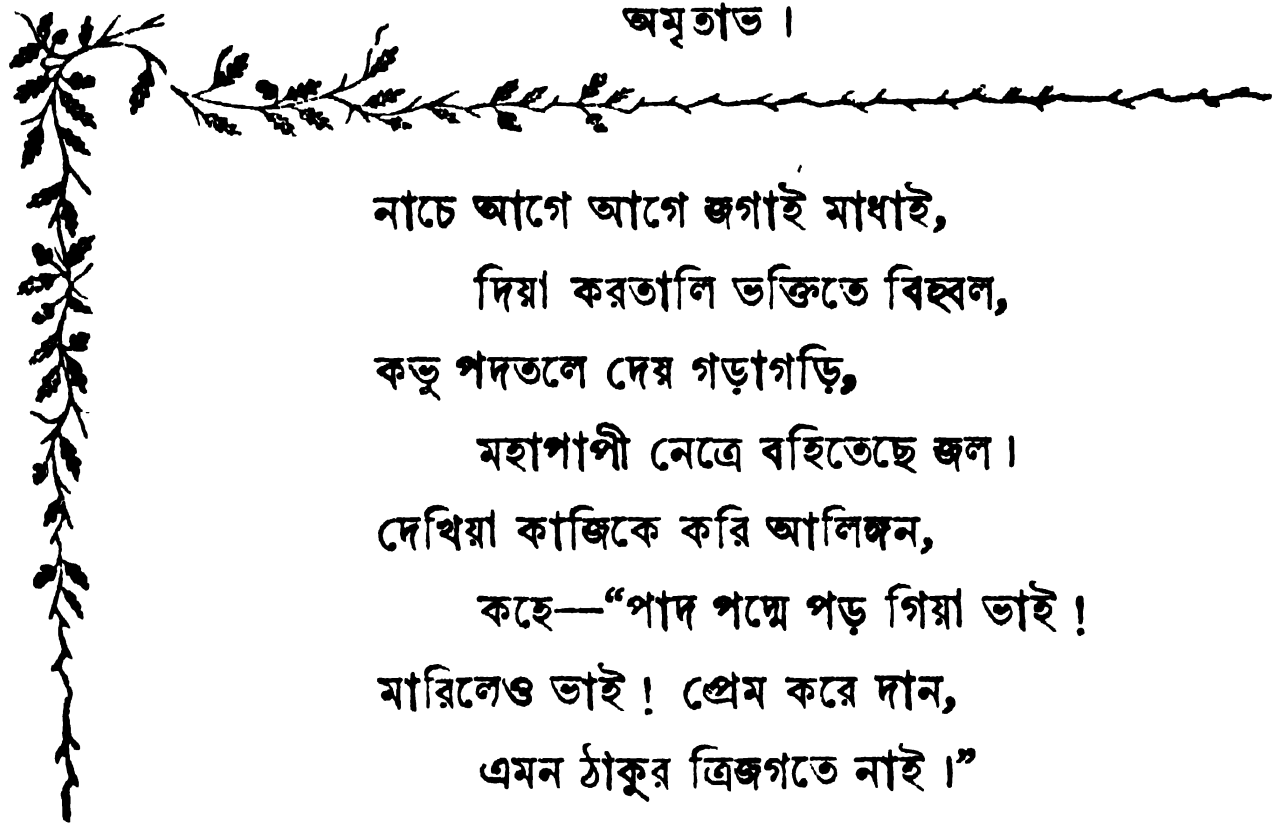 অমৃতাভ ।
নাচে আগে আগে জগাই মাধাই,
দিয়া করতালি ভক্তিতে বিহ্বল,
কভু পদতলে দেয় গড়াগড়ি,
মহাপাপী নেত্রে বহিতেছে জল ।
দেখিয়া কাজিকে করি আলিঙ্গন,
কহে—“পাদ পদ্মে পড় গিয়া ভাই !
মারিলেও ভাই ! প্রেম করে দান,
এমন ঠাকুর ত্রিজগতে নাই ।”